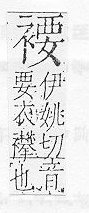 䙅
伊姚切音
要衣襻也